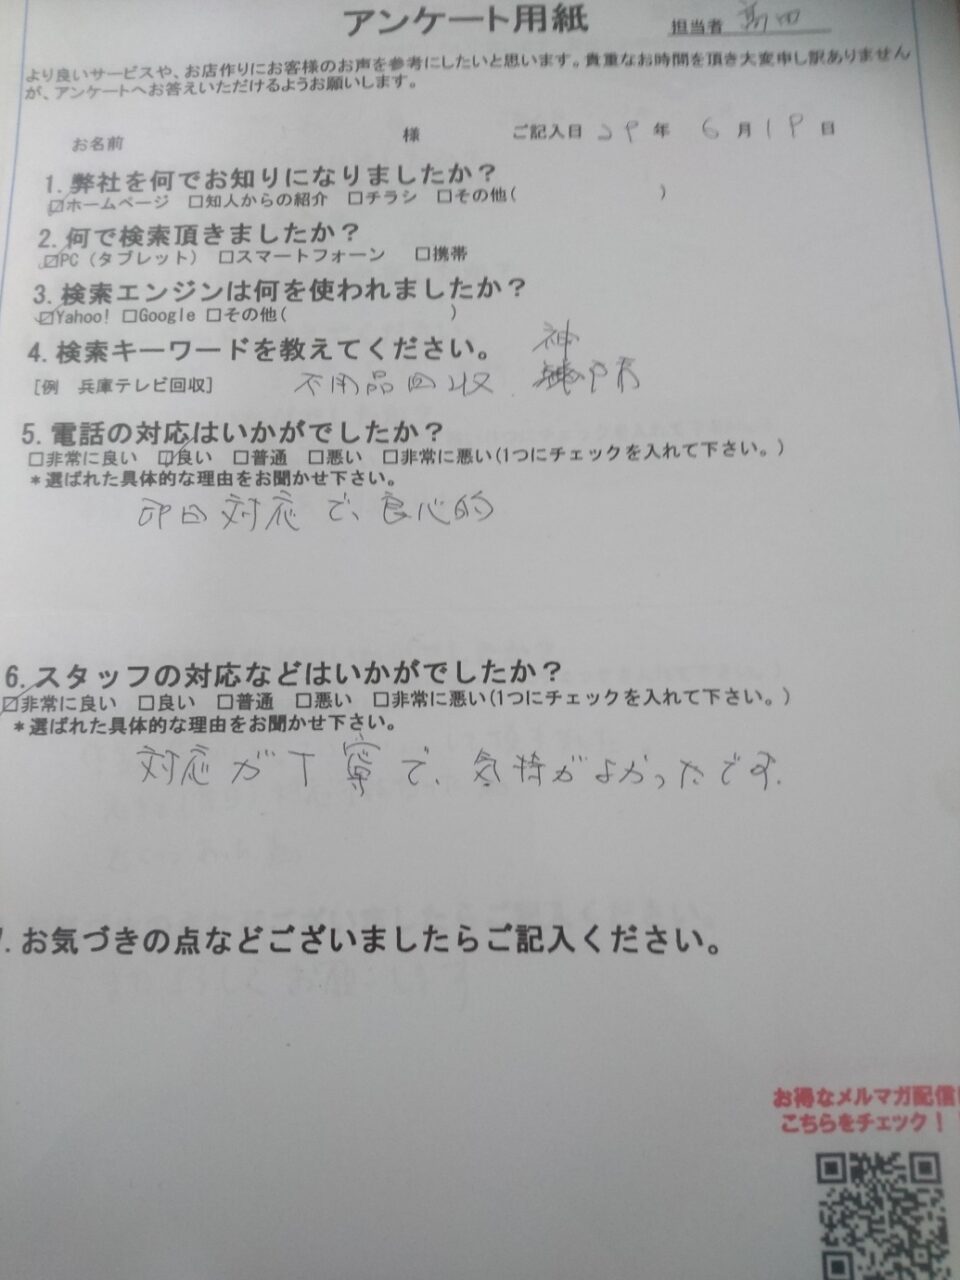 アンケート用紙
担当者
より良いサービスや、お店作りにお客様のお声を参考にしたいと思います。貴重なお時間を頂き大変申し訳ありません
が、アンケートへお答えいただけるようお願いします。
お名前 様 ご記入日 29 年 6 月 19 日
1. 弊社を何でお知りになりましたか？
☑ホームページ □知人からの紹介 □チラシ □その他( )
2. 何で検索頂きましたか？
☑PC（タブレット） □スマートフォーン □携帯
3. 検索エンジンは何を使われましたか？
☑Yahoo! □Google □その他( )
4. 検索キーワードを教えてください。
[例 兵庫テレビ回収] 不用品回収 神戸市
5. 電話の対応はいかがでしたか？
□非常に良い ☑良い □普通 □悪い □非常に悪い(1つにチェックを入れて下さい。)
＊選ばれた具体的な理由をお聞かせ下さい。
即日対応で、良心的
6. スタッフの対応などはいかがでしたか？
☑非常に良い □良い □普通 □悪い □非常に悪い(1つにチェックを入れて下さい。)
＊選ばれた具体的な理由をお聞かせ下さい。
対応が丁寧で、気持がよかったです.
7. お気づきの点などございましたらご記入ください。
お得なメルマガ配信
こちらをチェック！